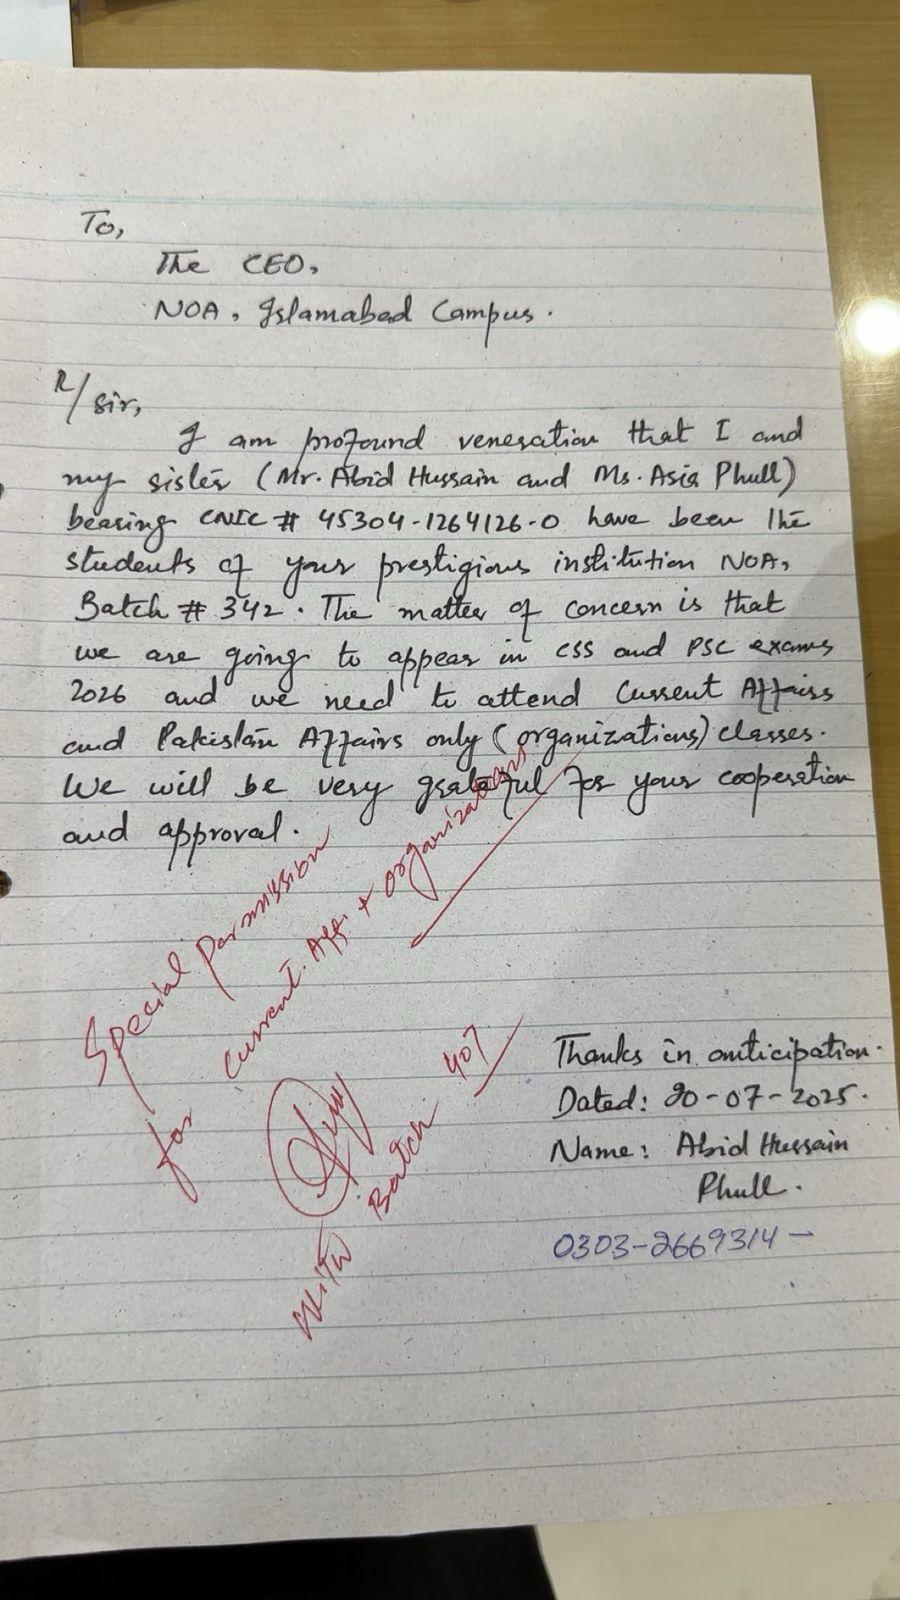 To,
The CEO,
NOA, Islamabad Campus.
R/Sir,
I am profound veneration that I and
my sister (Mr. Abid Hussain and Ms. Asia Phull)
bearing CNIC # 45304-1264126-0 have been the
students of your prestigious institution NOA,
Batch # 342. The matter of concern is that
we are going to appear in CSS and PSC exams
2026 and we need to attend Current Affairs
and Pakistan Affairs only (organizations) classes.
We will be very grateful for your cooperation
and approval.
Special Permission
for Current. Aff. + organizations
with Batch 407
Thanks in anticipation.
Dated: 20-07-2025.
Name: Abid Hussain
Phull.
0303-2669314-